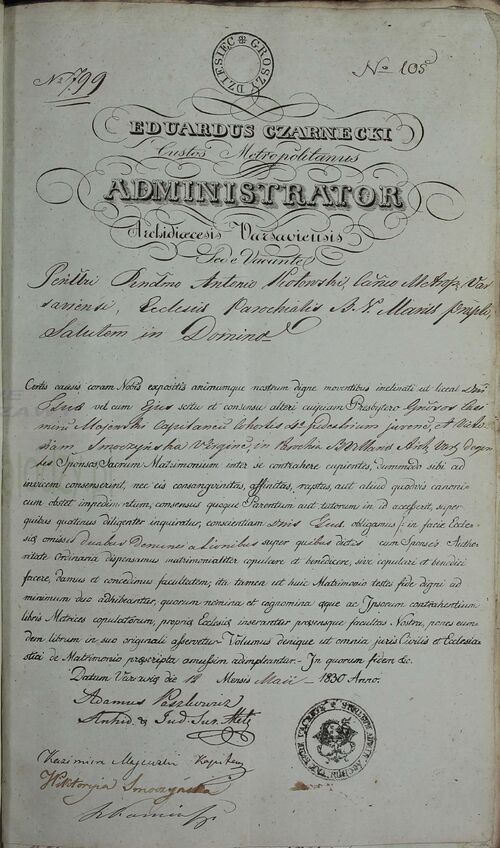 DZIESIEC GROSZY
No 799
No 105
EDUARDUS CZARNECKI
Custos Metropolitanus
ADMINISTRATOR
Archidiœcesis Varsaviensis
Sede Vacante
Antonio Kotowski, Metrop. Var
saviensi, Ecclesiæ Parochialis B. V. Mariæ
Salutem in Domino
Certis causis coram Nobis expositis animumque nostrum digne moventibus inclinati ut liceat
vel cum Ejus scitu et consensu alteri cuipiam Presbytero Gnrosos Casi
mirum Majewski Capitaneum juvenem, et Victo
riam Smoczyńska Virginem, in B V Mariæ degen
tes Sponsos Sacrum Matrimonium inter se contrahere cupientes, dummodo sibi ad
invicem consenserint, nec eis consangvinitas, affinitas, raptus, aut aliud quodvis canoni-
cum obstet impedimentum, consensus quoque Parentum aut tutorum in id accesserit, super
quibus quatinus diligenter inquiratur, conscientiam obligamus; in facie Eccle-
siæ, omissis duabus Denunciationibus super quibus dictis cum Sponsis Autho-
ritate Ordinaria dispensamus matrimonialiter copulare et benedicere, sive copulari et benedici
facere, damus et concedimus facultatem; ita tamen ut huic Matrimonio testes fide digni ad
minimum duo adhibeantur, quorum nomina et cognomina æque ac Ipsorum contrahentium
libris Matrices copulatorum, propriæ Ecclesiæ inserantur præsensque facultas Nostra, penes eun-
dem librum in suo originali asservetur Volumus denique ut omnia juris Civilis et Ecclesia-
stici de Matrimonio præscripta amussim adimpleantur. In quorum fidem &c.
Datum Varsaviæ die 18 Mensis Maii 1830 Anno.
Adamus
Kazimirz Majewski Kapitan
Wiktoryia Smoczyńska